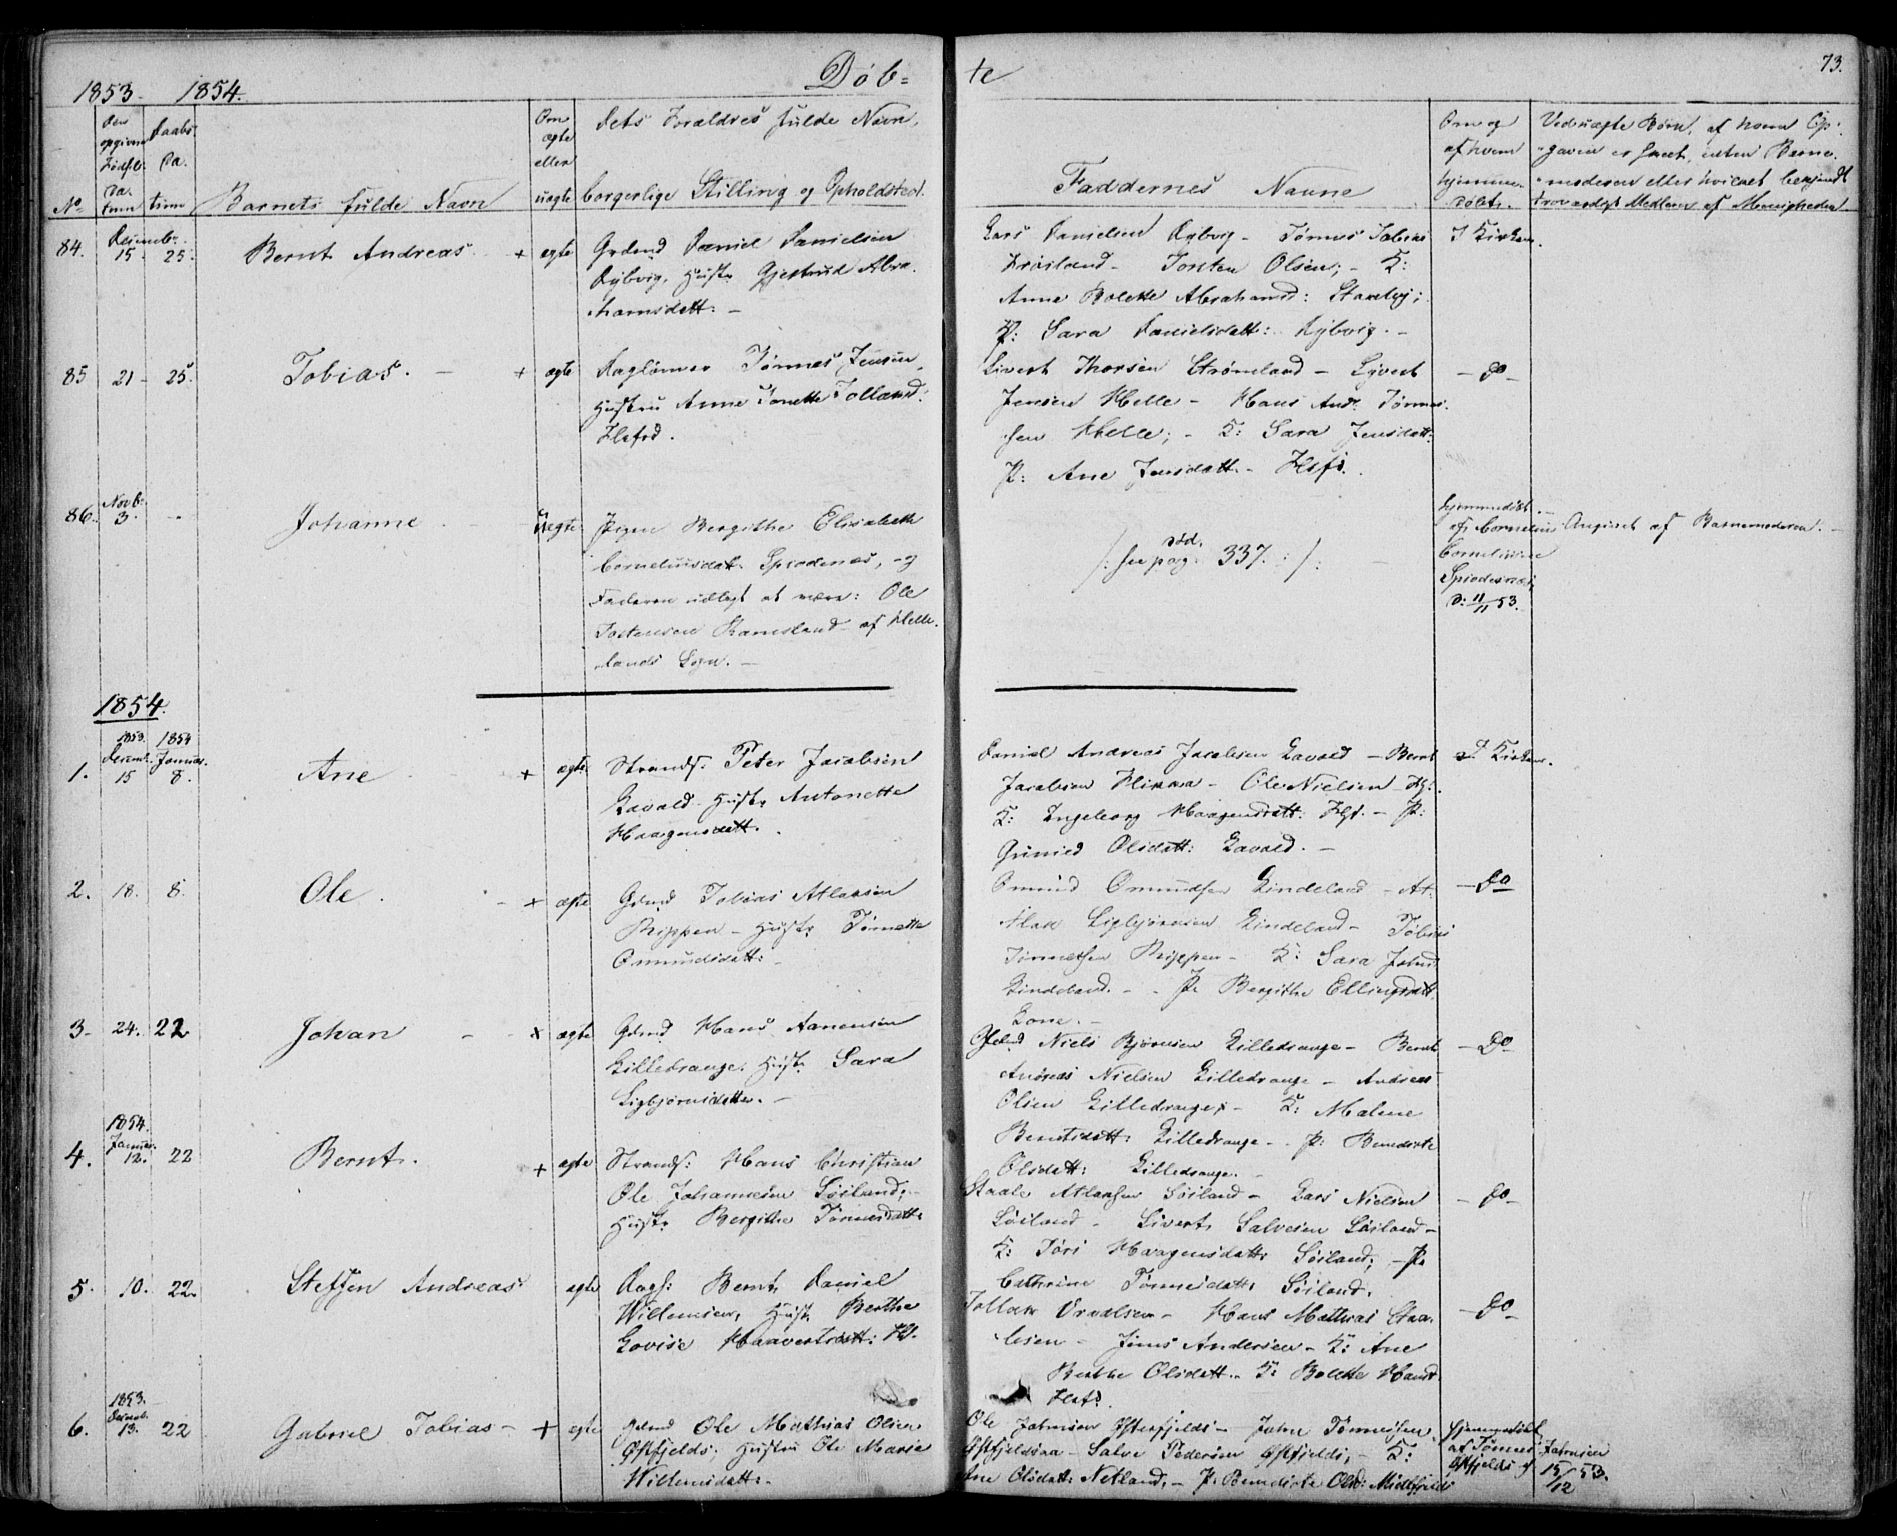 1853. 1854. Døb= te 73.
No
Den opgivne Fødsels Da- tum
Daabs- Da- tum
Barnets fulde Navn
Om ægte eller uægte
Dets Forældres fulde Navn,
borgerlige Stilling og Opholdsted.
Faddernes Navne
Om og
af hvem
hjemme-
døbt.
Ved uægte Børn, af hvem Op-
-gaven er skeet, enten Barne-
-moderen eller hvilket bekjendt
troværdigt Medlem af Menigheden
84. Decemb. 15 25. Bernt Andreas + ægte
Grdmd Daniel Danielsen
Hustr Gjertrud Abra-
hamsdatt. -
Lars Danielsen - Tønnes Tobias
- Torsten Olsen; - K:
Anne Bolette Abrahamsd:
P: Sara Danielsdatt:
I Kirken.
85 21 - 25. Tobias. - + ægte
Daglønner Tønnes Jensen
Hustru Anne Tonette Tollaksd:
Flsfrd.
Sivert Thorsen Strømland - Sivert
Jensen Helle - Hans Andr. Tønnes-
sen Helle; - K: Sara Jensdatt:
P: Ane Jensdatt. - Flsf.
- Do -
86. Novb. 3. - Johanne uægte
Pigen Bergithe Elisabeth
Corneliusdatt. Spiodenes, - og
Faderen udlagt at være: Ole
Tostensen Ramsland af Helle-
lands Sogn. -
/: see pag. 337. :/
hjemmedøbt
af Cornelius
Cornelius
Spiodenes,
d: 11/11 53.
Angivet af Barnemoderen. -
1854.
1. 1853. Decemb. 15 1854 Januar. 8. Ane + ægte
Strands: Peter Jacobsen
Lavold Hustr Antonette
Haagensdatt.
Daniel Andreas Jacobsen Lavold - Bernt
Jacobsen - Ole Nielsen
K: Engeborg Haagensdatt: - P:
Olsdatt: Lavold. -
I Kirken.
2. 18. 8. Ole. - + ægte
Grdmd Tobias Atlaksen
- Hustr Tønnette
Omundsdatt:
Omund Omundsen Lindeland - At-
lak Sigbjørnsen Lindeland - Tobias
Tønnessen - K: Sara
Lindeland. - - P. Bergithe Ellingsdatt
Lone. -
- Do
3. 24. 22 Johan - x ægte
Grdmd Hans Aanensen
Lilledrange. Hustr Sara
Sigbjørnsdatter. -
Niels Bjørnsen Lilledrange - Bernt
Andreas Nielsen Lilledrange - Andreas
Olsen Lilledrange; - K: Malene
Berntsdatt: Lilledrange - P: Benedicte
Olsdatt: Lilledrange. -
- Do -
4. 1854. Januar. 12. 22 Bernt. + ægte
Strands: Hans Christian
Ole Johannesen Søiland; -
Hustr Bergithe Tønnesdatt:
Staale Atlaksen Søiland - Lars Nielsen
Søiland - Sivert Salvesen Søiland -
K: Tøri Haagensdatt: Søiland; - P.
Cathrine Tønnesdatt: Søiland.
- Do -
5. 10. 22. Steffen Andreas ægte
Dags: Bernt Daniel
Willemsen, Hustr. Berthe
Lovise Haavertsdatt:
Tollak Osvalsen - Hans Mathias Staa-
lesen - Jens Andersen - K: Ane
Berthe Olsdatt. - K: Bolette Hansd
Flsf.
- Do -
6. 1853. Decemb. 13. 22 Gabriel Tobias - + ægte
Grdmd Ole Mathias Olsen
Østfjelds; Hustru Ole Marie
Willemsdatt. -
Ole Johnsen Østefjelds - John Tønnessen
- Salve Pedersen Østfjelds; - K:
Ane Olsdatt: Netland, - P: Benedicte Olsd: Midtfjelds
hjemmedøbt
af Tønnes Johnsen
Østfjelds d. 15/12 53.